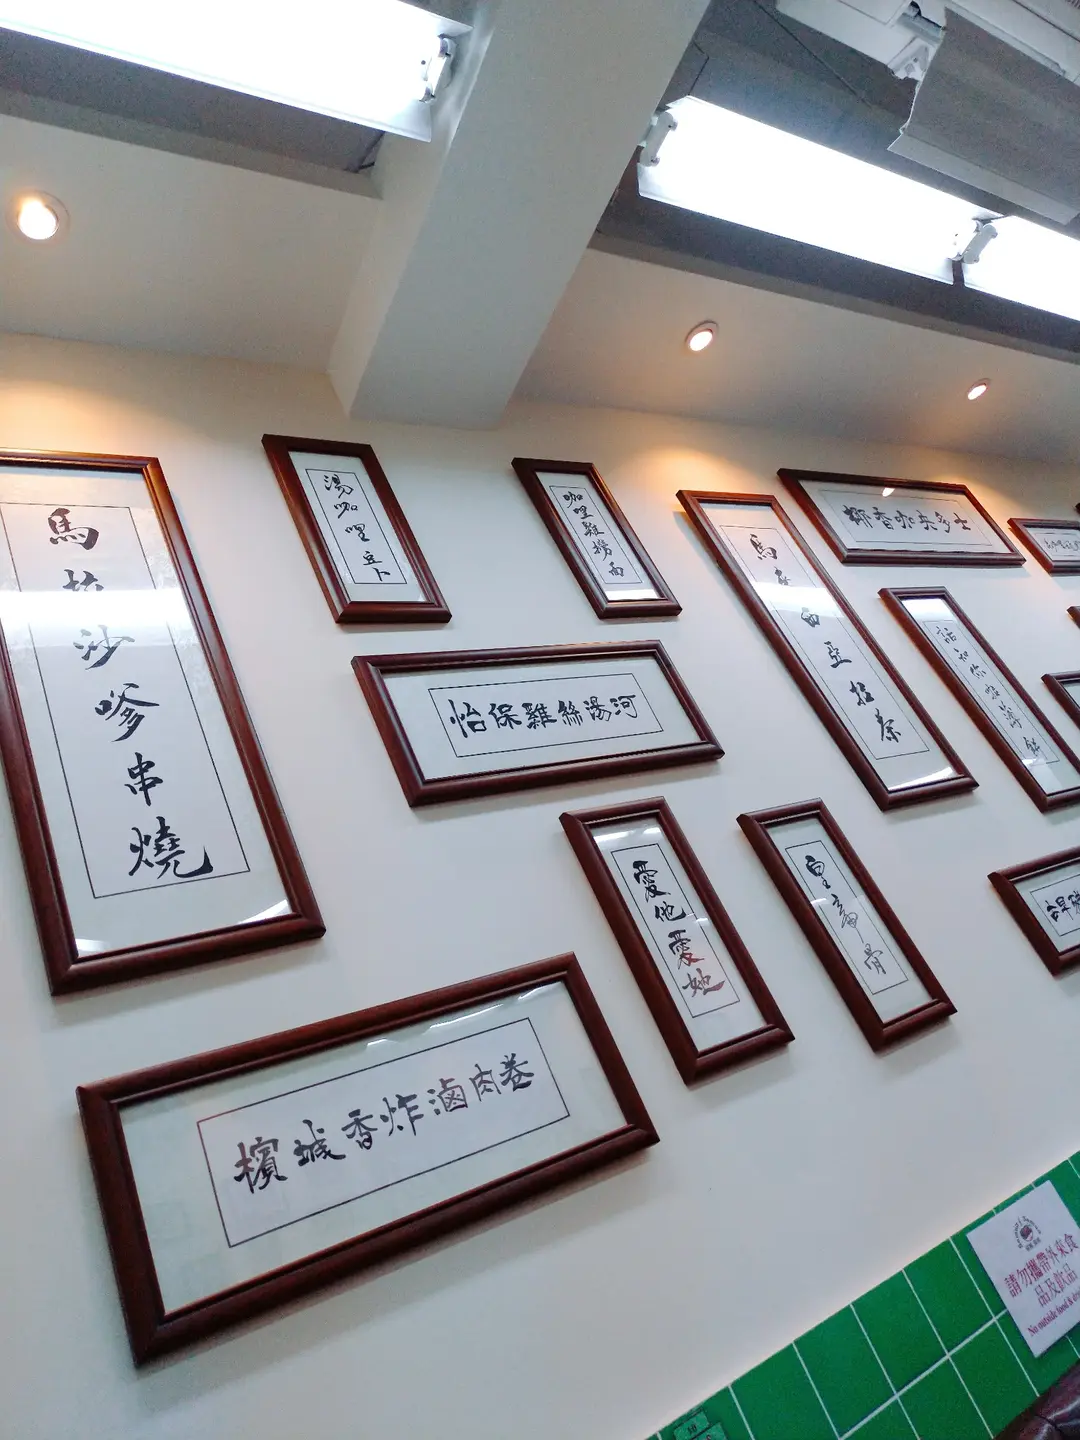 馬拉沙嗲串燒
湯咖哩豆卜
咖哩雞撈面
怡保雞絲湯河
馬來西亞拉茶
椰香咖央多士
愛他愛她
皇帝骨
檳城香炸滷肉卷
請勿攜帶外來食
品及飲品
No outside food &